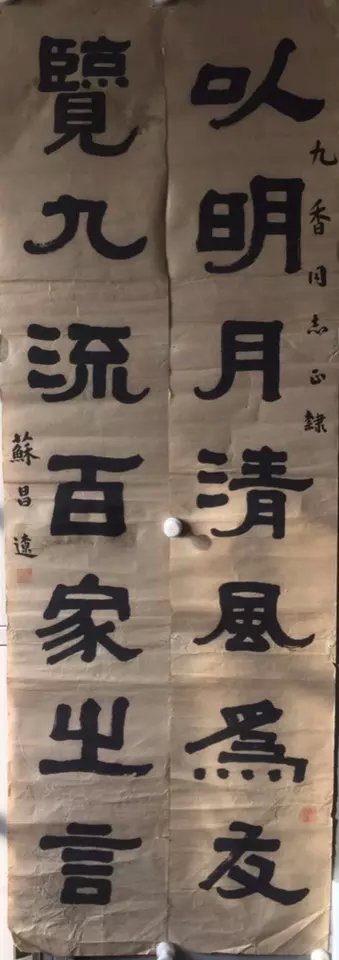 九香同志正隸
以明月清風為友
覽九流百家之言
蘇昌遼